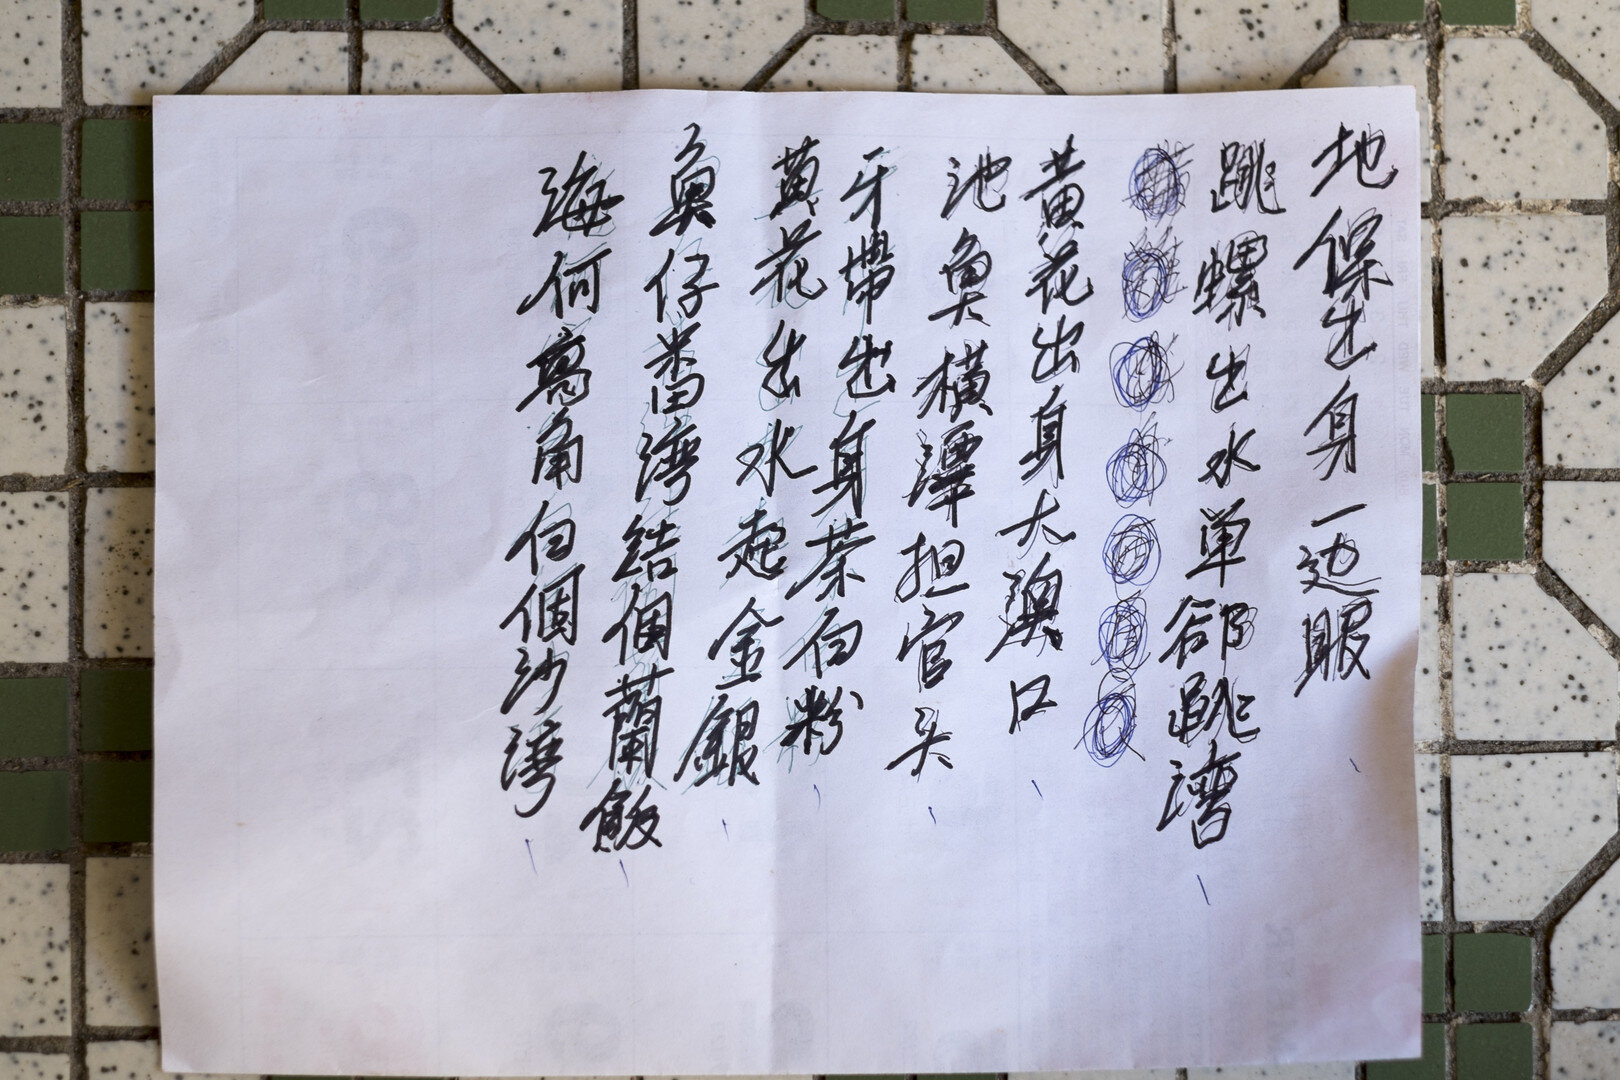 地保出身一边眼
跳螺出水单郤跳湾
黃花出身大澳口
池魚橫潭担官头
牙帶出身茶白粉
黃花出水起金銀
魚仔番湾结個蘭飯
海何离角白個沙湾